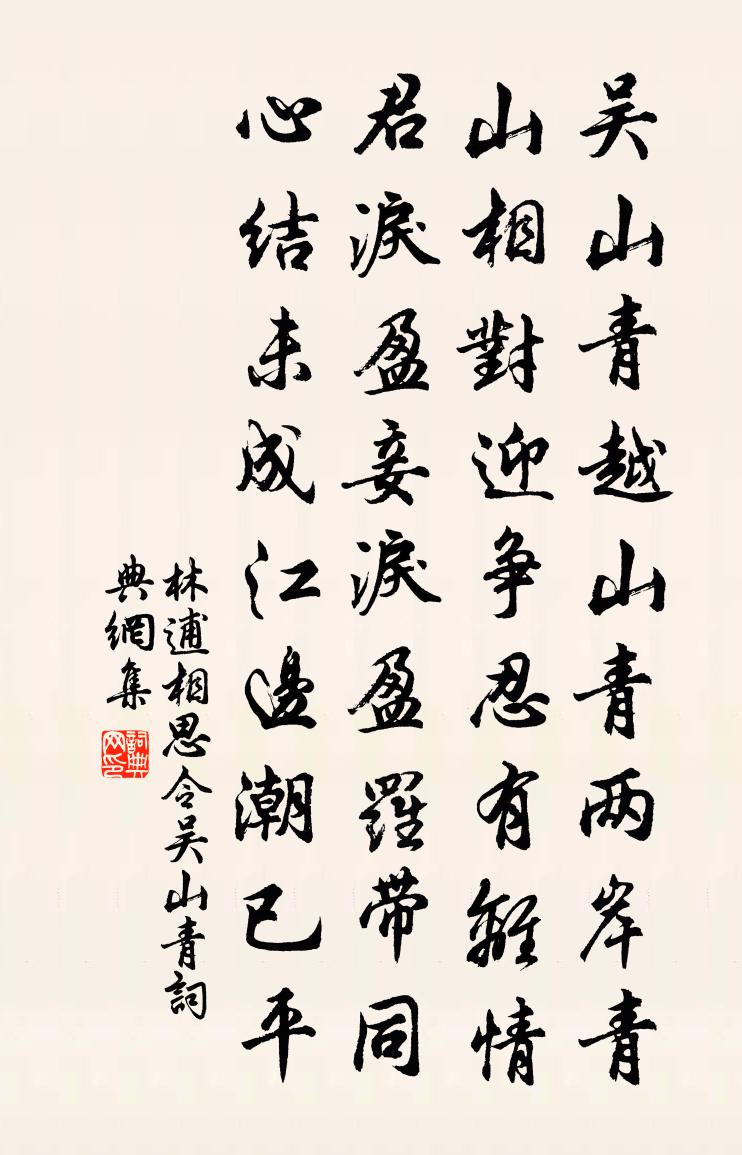 吴山青越山青两岸青
山相對迎争忍有離情
君淚盈妾淚盈羅带同
心结未成江邊潮已平
林逋相思令吴山青詞
典網集
詞典网印